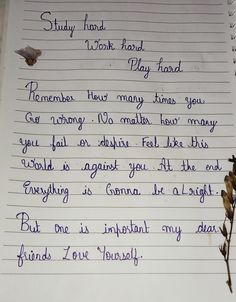 Study hard
Work hard
Play hard
Remember How many times you
Go wrong. No matter how many
you fail or despire. Feel like this
World is against you. At the end
Everything is Gonna be alright.
But one is important my dear
friends Love Yourself.